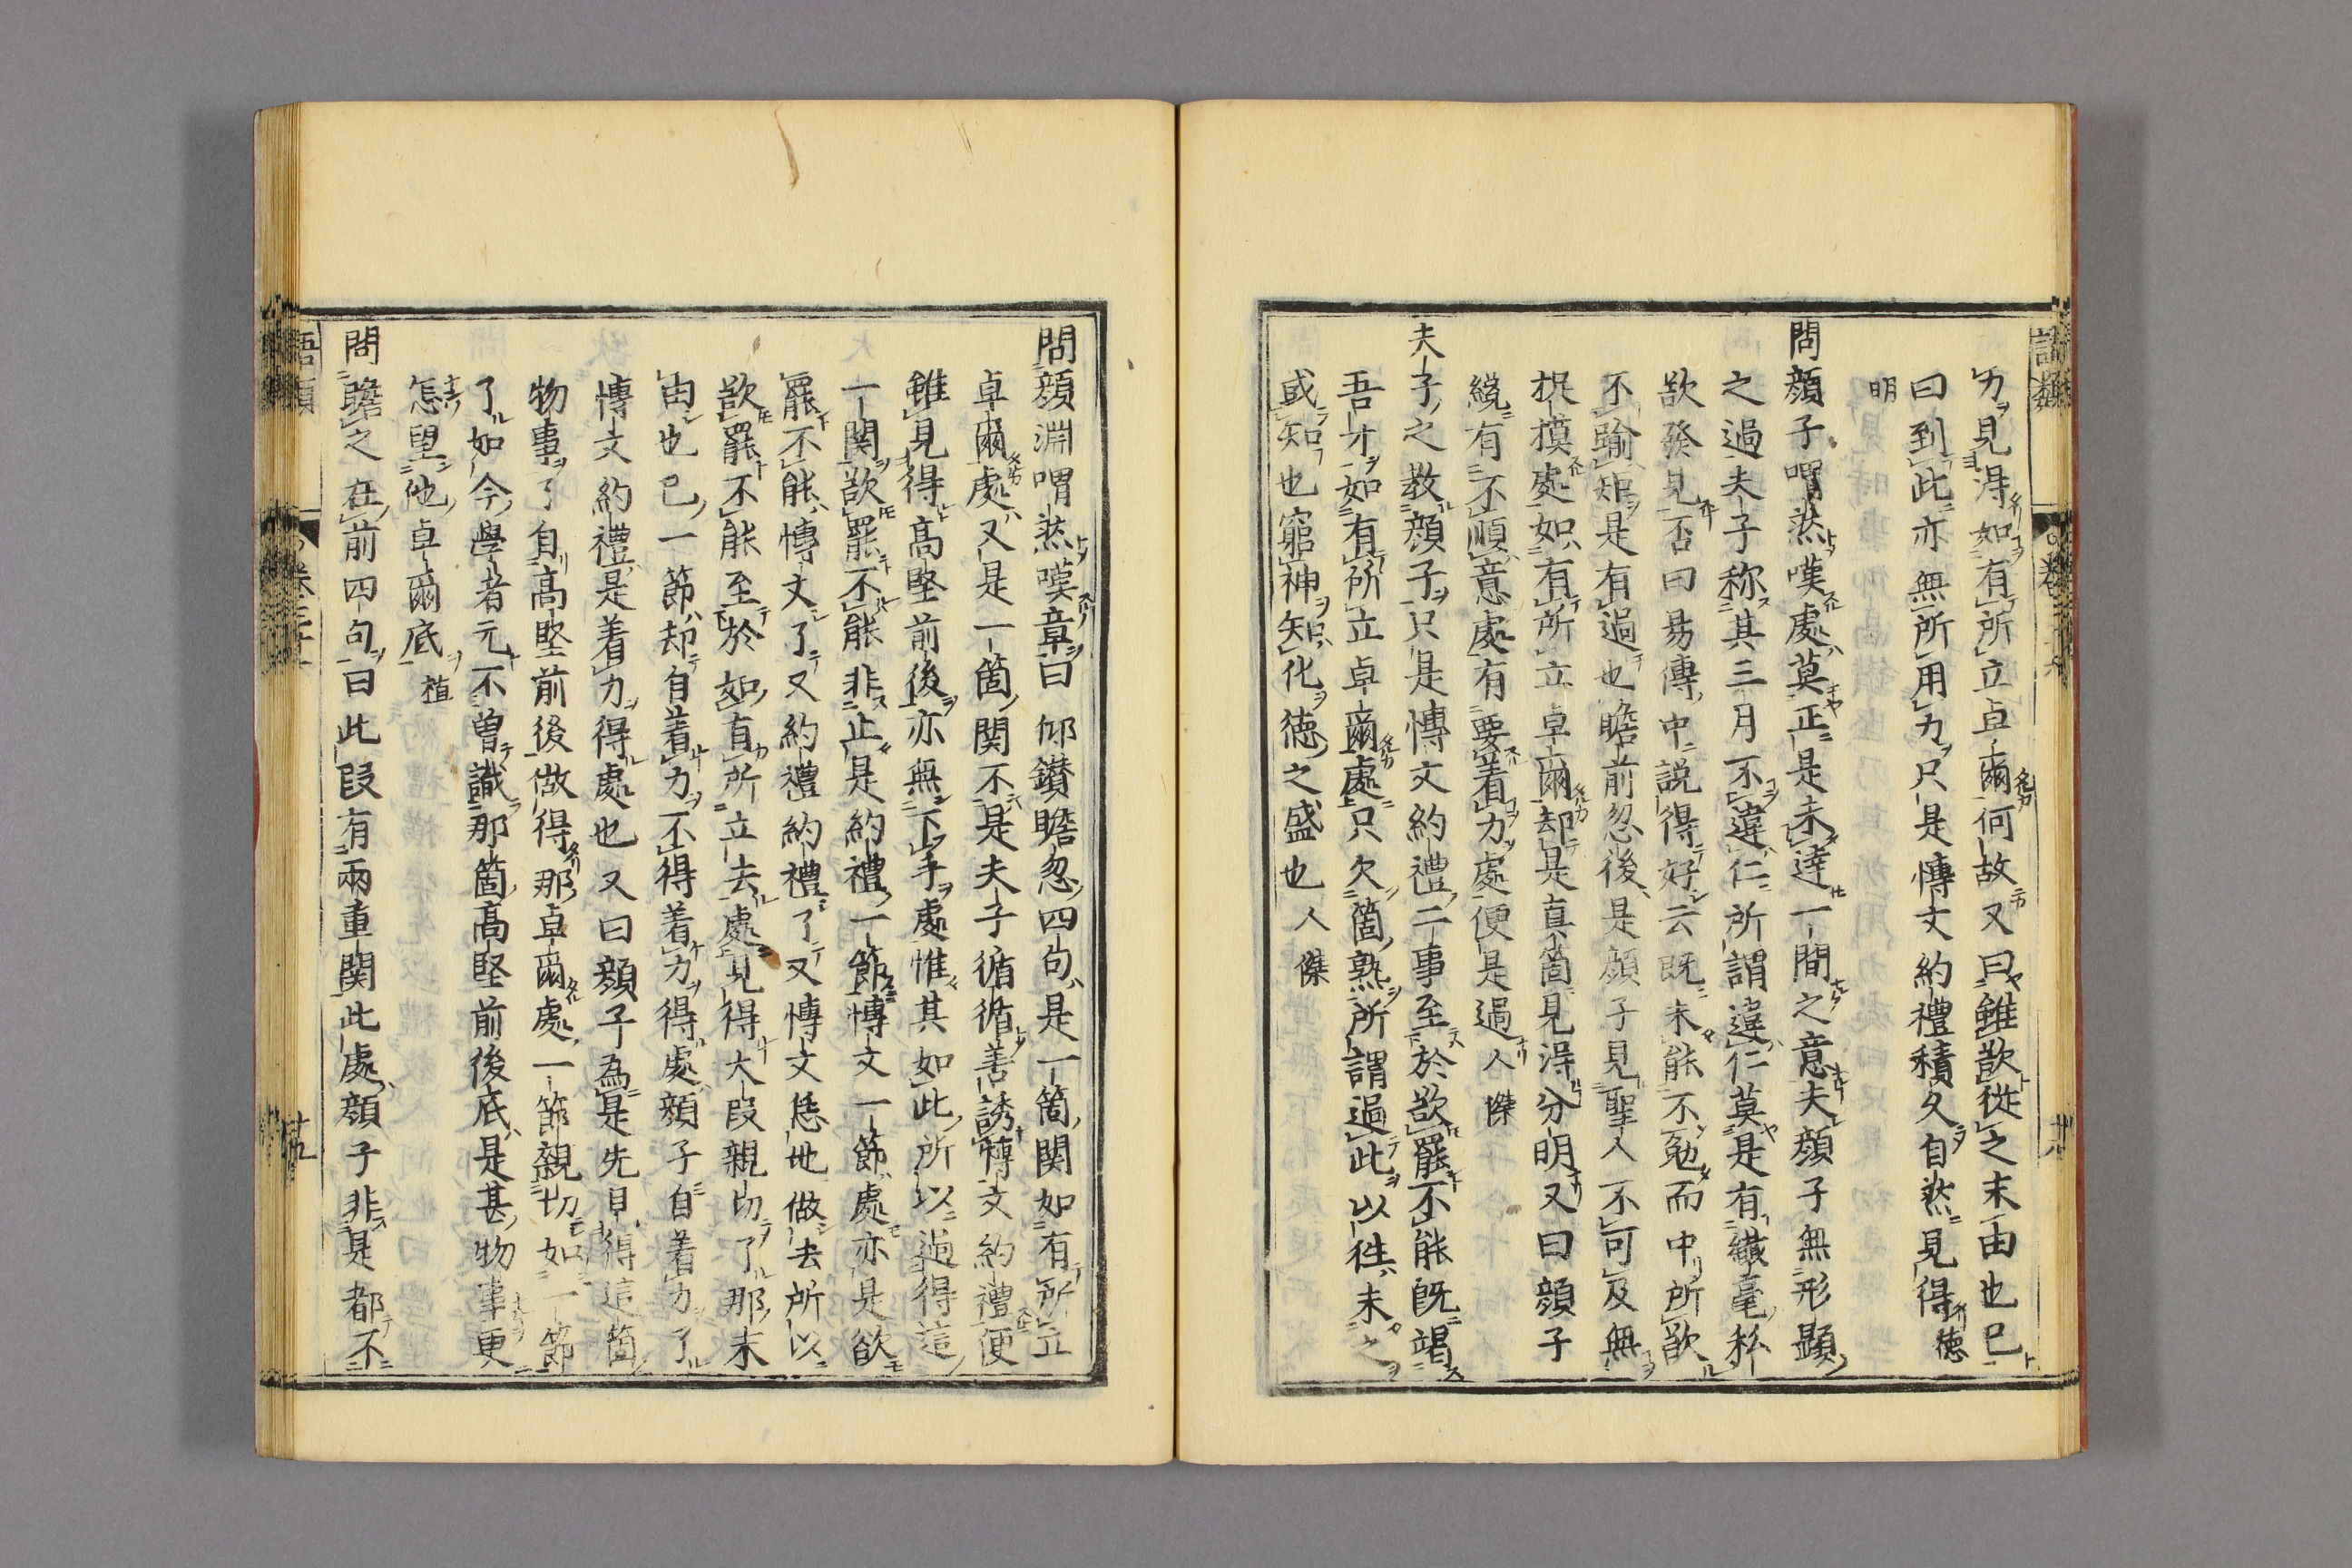 語類
力見得如有所立卓爾何故又曰雖欲從之末由也已
曰到此亦無所用力只是博文約禮積久自然見得 德
明
問顏子喟然嘆處莫正是未達一間之意夫顏子無形顯
之過夫子称其三月不違仁所謂違仁莫是有纖毫私
欲發見否曰易傳中說得好云既未能不勉而中所欲
不踰矩是有過也瞻前忽後是顏子見聖人不可及無
捉摸處如有所立卓爾却是真箇見得分明又曰顏子
纔有不順意處有要着力處便是過 人傑
夫子之教顏子只是博文約禮二事至於欲罷不能既竭
吾才如有所立卓爾處只欠箇熟所謂過此以往未之
或知也窮神知化德之盛也 人傑
問顏淵喟然嘆章曰仰鑽瞻忽四句是一箇関如有所立
卓爾處又是一箇関不是夫子循循善誘博文約禮便
雖見得高堅前後亦無下手處惟其如此所以過得這
一関欲罷不能非止是約禮一節博文一節處亦是欲
罷不能博文了又約禮約禮了又博文恁地做去所以
欲罷不能至於如有所立去處見得大段親切了那末
由也已一節却自着力不得着力得處顏子自着力了
博文約禮是着力得處也又曰顏子為是先見得這箇
物事了自高堅前後做得那卓爾處一節親切如一節
了如今學者元不曽識那箇高堅前後底是甚物事更
怎望他卓爾底 植
問瞻之在前四句曰此段有兩重関此處顏子非是都不
語類